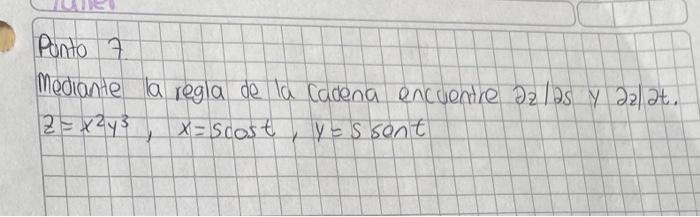 Taller
Punto 7
Mediante la regla de la cadena encuentre ∂z/∂s y ∂z/∂t.
z = x²y³, x = s cos t, y = s sen t